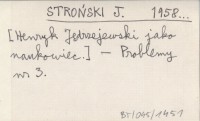 STROŃSKI J. 1958...
[Henryk Jędrzejewski jako
naukowiec.] — Problemy
nr 3.
BT/045/1451